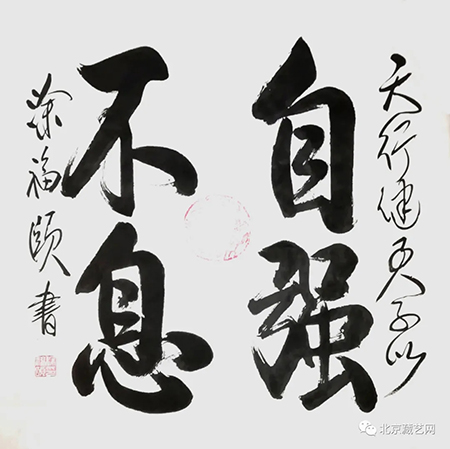 天行健君子以
自强
不息
福書
北京藏艺网